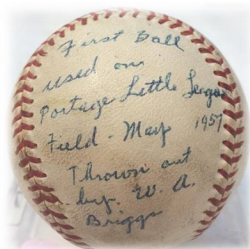 First Ball
used on
Portage Little League
Field - May 1957
Thrown out
by. W. A.
Briggs